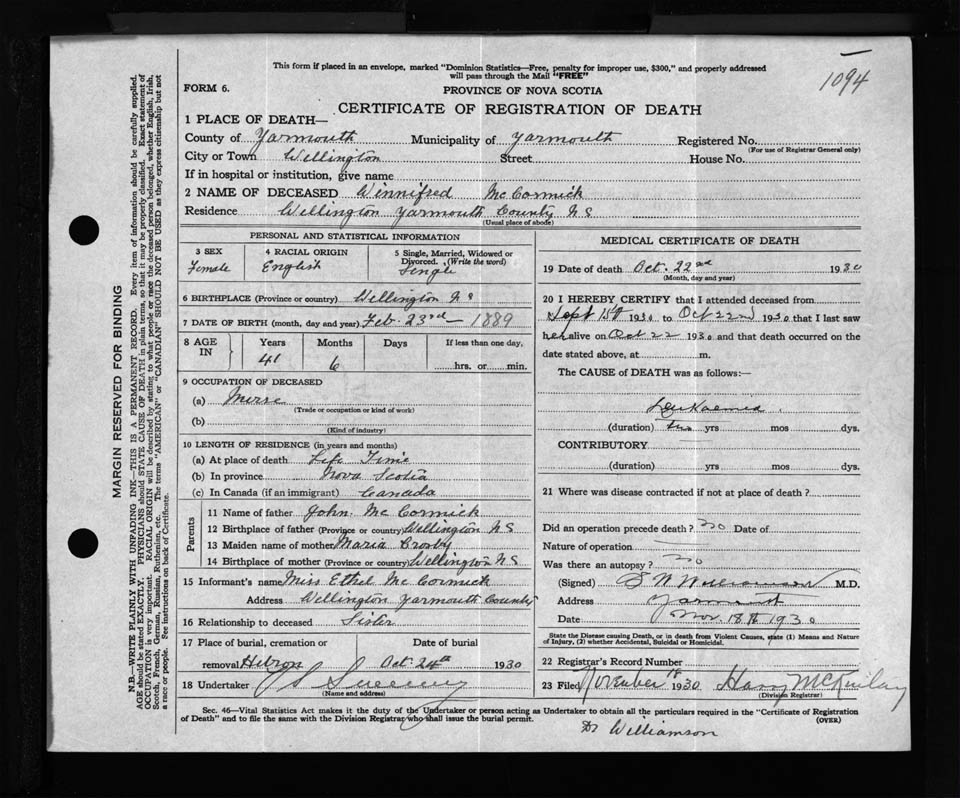 This form if placed in an envelope, marked "Dominion Statistics—Free, penalty for improper use, $300," and properly addressed
will pass through the Mail "FREE"
1094
FORM 6.
PROVINCE OF NOVA SCOTIA
CERTIFICATE OF REGISTRATION OF DEATH
1 PLACE OF DEATH—
County of Yarmouth Municipality of Yarmouth Registered No.
(For use of Registrar General only)
City or Town Wellington Street House No.
If in hospital or institution, give name
2 NAME OF DECEASED Winnifred McCormick
Residence Wellington Yarmouth County N S
(Usual place of abode)
PERSONAL AND STATISTICAL INFORMATION
3 SEX Female
4 RACIAL ORIGIN English
5 Single, Married, Widowed or Divorced. (Write the word) Single
6 BIRTHPLACE (Province or country) Wellington N S
7 DATE OF BIRTH (month, day and year) Feb. 23rd — 1889
8 AGE IN Years 41 Months 6 Days If less than one day, hrs. or min.
9 OCCUPATION OF DECEASED
(a) Nurse
(Trade or occupation or kind of work)
(b)
(Kind of industry)
10 LENGTH OF RESIDENCE (in years and months)
(a) At place of death Life Time
(b) In province Nova Scotia
(c) In Canada (if an immigrant) Canada
Parents
11 Name of father John McCormick
12 Birthplace of father (Province or country) Wellington N S
13 Maiden name of mother Maria Crosby
14 Birthplace of mother (Province or country) Wellington N S
15 Informant's name Miss Ethel McCormick
Address Wellington Yarmouth County
16 Relationship to deceased Sister
17 Place of burial, cremation or removal Hebron
Date of burial Oct 24th 1930
18 Undertaker Sweeney
(Name and address)
MEDICAL CERTIFICATE OF DEATH
19 Date of death Oct. 22nd 1930
(Month, day and year)
20 I HEREBY CERTIFY that I attended deceased from
Sept 1st 1930 to Oct 22nd 1930 that I last saw
her alive on Oct 22 1930 and that death occurred on the
date stated above, at m.
The CAUSE of DEATH was as follows:—
Leukaemia.
(duration) two yrs mos dys.
CONTRIBUTORY
(duration) yrs mos dys.
21 Where was disease contracted if not at place of death?
Did an operation precede death? no Date of
Nature of operation
Was there an autopsy? no
(Signed) S W Williamson M.D.
Address Yarmouth
Date Nov. 18th 1930
State the Disease causing Death, or in death from Violent Causes, state (1) Means and Nature
of Injury, (2) whether Accidental, Suicidal or Homicidal.
22 Registrar's Record Number
23 Filed November 18 1930 Harry McKinlay
(Division Registrar)
Sec. 46—Vital Statistics Act makes it the duty of the Undertaker or person acting as Undertaker to obtain all the particulars required in the "Certificate of Registration
of Death" and to file the same with the Division Registrar who shall issue the burial permit.
(OVER)
Dr Williamson
MARGIN RESERVED FOR BINDING
N.B.—WRITE PLAINLY WITH UNFADING INK—THIS IS A PERMANENT RECORD. Every item of information should be carefully supplied.
AGE should be stated EXACTLY. PHYSICIANS should STATE CAUSE OF DEATH in plain terms, so that it may be properly classified. Exact statement of
OCCUPATION is very important. RACIAL ORIGIN will be described by stating to what people or race the deceased person belonged, whether English, Irish,
Scotch, French, German, Russian, Ruthenian, etc. The terms "AMERICAN" or "CANADIAN" SHOULD NOT BE USED as they express citizenship but not
a race or people. See instructions on back of Certificate.